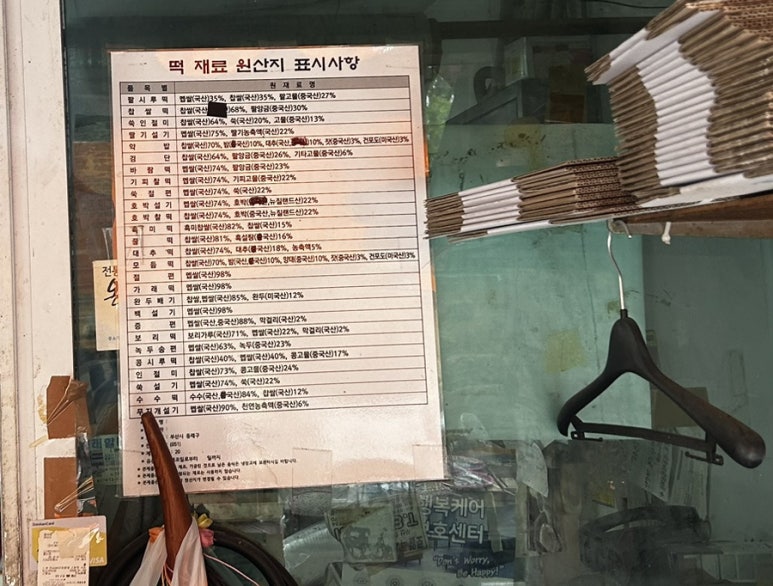 떡 재료 원산지 표시사항
품목별 원재료명
팥시루떡 멥쌀(국산)35%, 찹쌀(국산)35%, 팥고물(중국산)27%
찹쌀떡 찹쌀(국산 68%, 팥앙금(중국산)30%
쑥인절미 찹쌀(국산)64%, 쑥(국산)20%, 고물(중국산)13%
딸기설기 멥쌀(국산)75%, 딸기농축액(국산)22%
약밥 찹쌀(국산)70%, 밤( 국산)10%, 대추( 10%, 잣(중국산)3%, 건포도(미국산)3%
경단 찹쌀(국산)64%, 팥앙금(중국산)26%, 기타고물(중국산)6%
바람떡 멥쌀(국산)74%, 팥앙금(중국산)23%
기피찰떡 찹쌀(국산)74%, 기피고물(중국산)22%
쑥절편 멥쌀(국산)74%, 쑥(국산)22%
호박설기 멥쌀(국산)74%, 호박( ,뉴질랜드산)22%
호박찰떡 찹쌀(국산)74%, 호박(중국산,뉴질랜드산)22%
흑미떡 흑미찹쌀(국산)82%, 찹쌀(국산)15%
떡 찹쌀(국산)81%, 흑설탕( 국산)16%
대추떡 찹쌀(국산)74%, 대추( 국산)18%, 농축액5%
모듬떡 찹쌀(국산)70%, 밤(국산, 국산)10%, 양대(중국산)10%, 잣(중국산)3%, 건포도(미국산)3%
절편 멥쌀(국산)98%
가래떡 멥쌀(국산)98%
완두빼기 찹쌀,멥쌀(국산)85%, 완두(미국산)12%
백설기 멥쌀(국산)98%
증편 멥쌀(국산,중국산)88%, 막걸리(국산)2%
보리떡 보리가루(국산)71%, 멥쌀(국산)22%, 막걸리(국산)2%
녹두송편 멥쌀(국산)63%, 녹두(중국산)23%
콩시루떡 찹쌀(국산)40%, 멥쌀(국산)40%, 콩고물(중국산)17%
인절미 찹쌀(국산)73%, 콩고물(중국산)24%
쑥설기 멥쌀(국산)74%, 쑥(국산)22%
수수떡 수수(국산, 국산)84%, 찹쌀(국산)12%
무지개설기 멥쌀(국산)90%, 천연농축액(중국산)6%
부산시 동래구
(051)
20
일까지
행복케어
호센터
"Don't Worry,
Be Happy!"
VISA